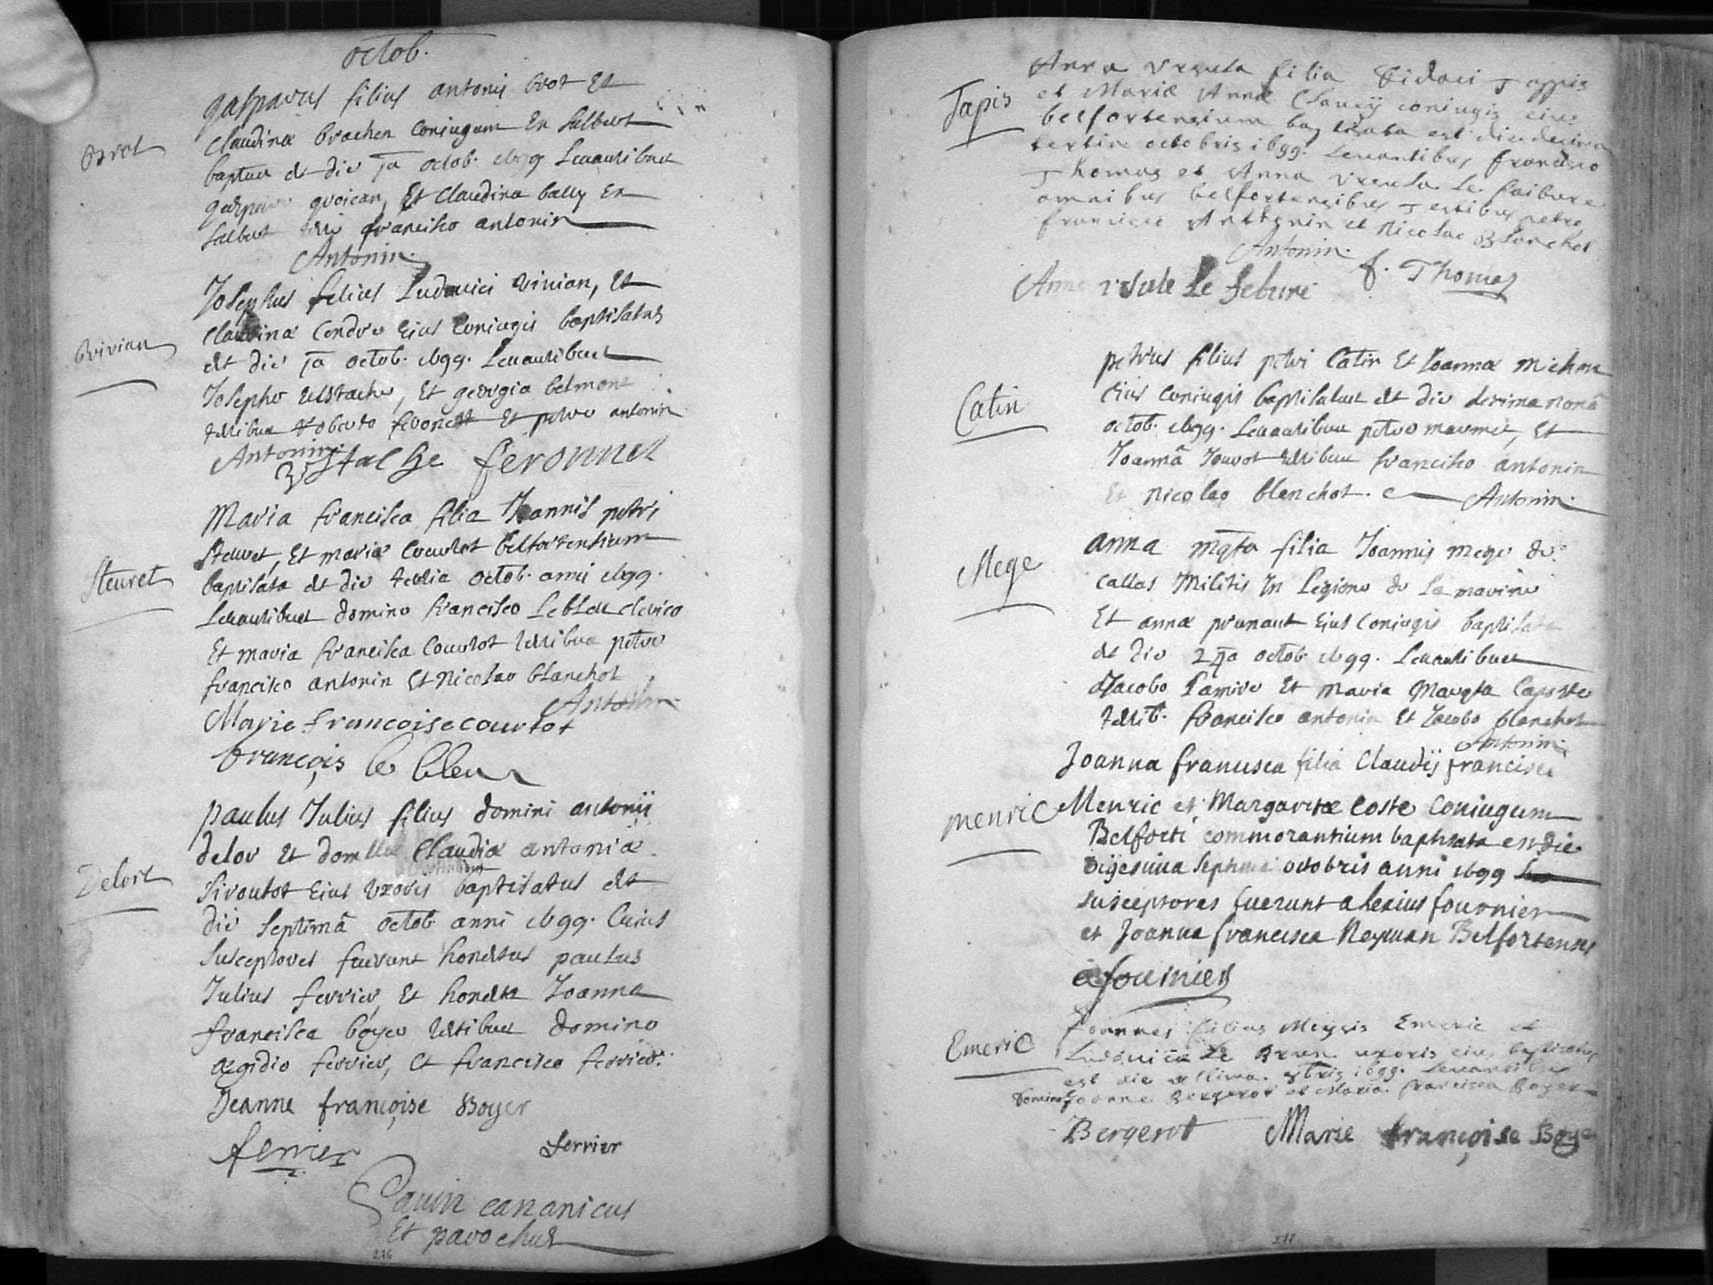 octob.
gasparus filius antonij brot Et
Brot
claudinæ brachen Coniugum Ex Salbert
baptus est die 1a octob. 1699 Levantibus
gaspare Et Claudina bally Ex
Salbert francisco antonin
Antonin
Josephus filius Ludovici vivian, Et
claudinæ Eius Coniugis baptisatus
Vivian
est die 1a octob. 1699. Levantibus
Josepho Eustache, Et georgia belmont
testibus roberto feronett Et petro antonin
Antonin
Ystache feronnet
Maria francisca filia Joannis petri
Steuret, Et mariæ Courtot belfortensium
Steuret
baptisata est die tertia octob. anni 1699.
Levantibus domino francisco Lebleu clerico
Et maria francisca Courtot testibus petro
francisco antonin Et Nicolao blanchot
Antonin
Marie francoise courtot
francois le bleu
paulus Julius filius domini antonij
delor Et domllæ Claudiæ antoniæ
Delort
Eius uxoris baptisatus est
die septimâ octob. anni 1699. Cuius
Susceptores fuerunt honestus paulus
Julius ferrier, Et honesta Joanna
francisca boyer testibus domino
ægidio ferrier, et francisco ferrier.
Jeanne françoise Boyer
ferrier ferrier
canonicus
Et parochus
216
Anna Ursula filia
Tapis
et Mariæ Annæ coniugis eius
belfortensium baptisata est die decima
tertia octobris 1699. Levantibus francisco
Thomas et Anna Ursula Le faibure
omnibus belfortensibus Testibus petro
francisco Anthonin et Nicolao Blanchot
Antonin. f. Thomas
Anne ursule Le febure
petrus filius petri Catin Et Joannæ Michou
Catin
Eius Coniugis baptisatus est die decima nonâ
octob. 1699. Levantibus petro Et
Joannâ testibus francisco antonin
Et Nicolao blanchot. Antonin.
anna mgta filia Joannis mege de
Mege
callas Militis In Legione de La marine
Et annæ prunaut Eius Coniugis baptisata
est die octob. 1699. Levantibus
Jacobo Et maria Margta
testib. francisco antonin Et Jacobo blanchot
Antonin
Joanna francisca filia Claudij francisci
menric
Menric et Margaritæ Coste Coniugum
Belforti commorantium baptisata est die
vigesima septima octobris anni 1699
susceptores fuerunt alexius fournier
et Joanna francisca Belfortenses
a fournier
Joannes filius Emeric et
Emeric
Ludovicæ Le Brun uxoris eius baptisatus
est die ultima 8bris 1699. Levantibus
Domino Joanne Bergerot et Maria francisca Boyer
Bergerot Marie françoise Boye
217